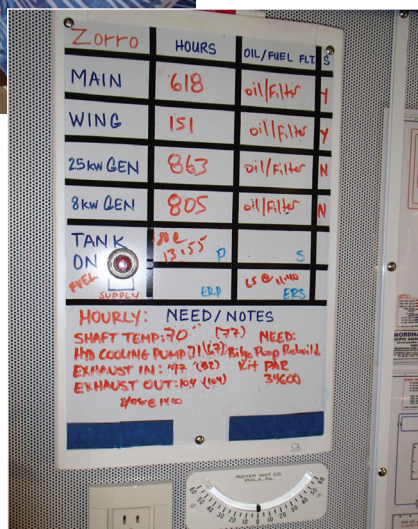 Zorro HOURS OIL/FUEL FLT. S
MAIN 618 oil/Filter Y
WING 151 oil/Filter Y
25KW GEN 863 oil/Filter N
8KW GEN 805 oil/Filter N
TANK ON 13:55 P S
FUEL SUPPLY ERP ERS
HOURLY: NEED/NOTES
SHAFT TEMP: 70 (77) NEED:
HYD COOLING PUMP 71 (67) Bilge Pump Rebuild
EXHAUST IN: 97 (92) Kit PAR
EXHAUST OUT: 104 (104) 34600
RIEKER INST CO
PHILA, PA
NORDHA